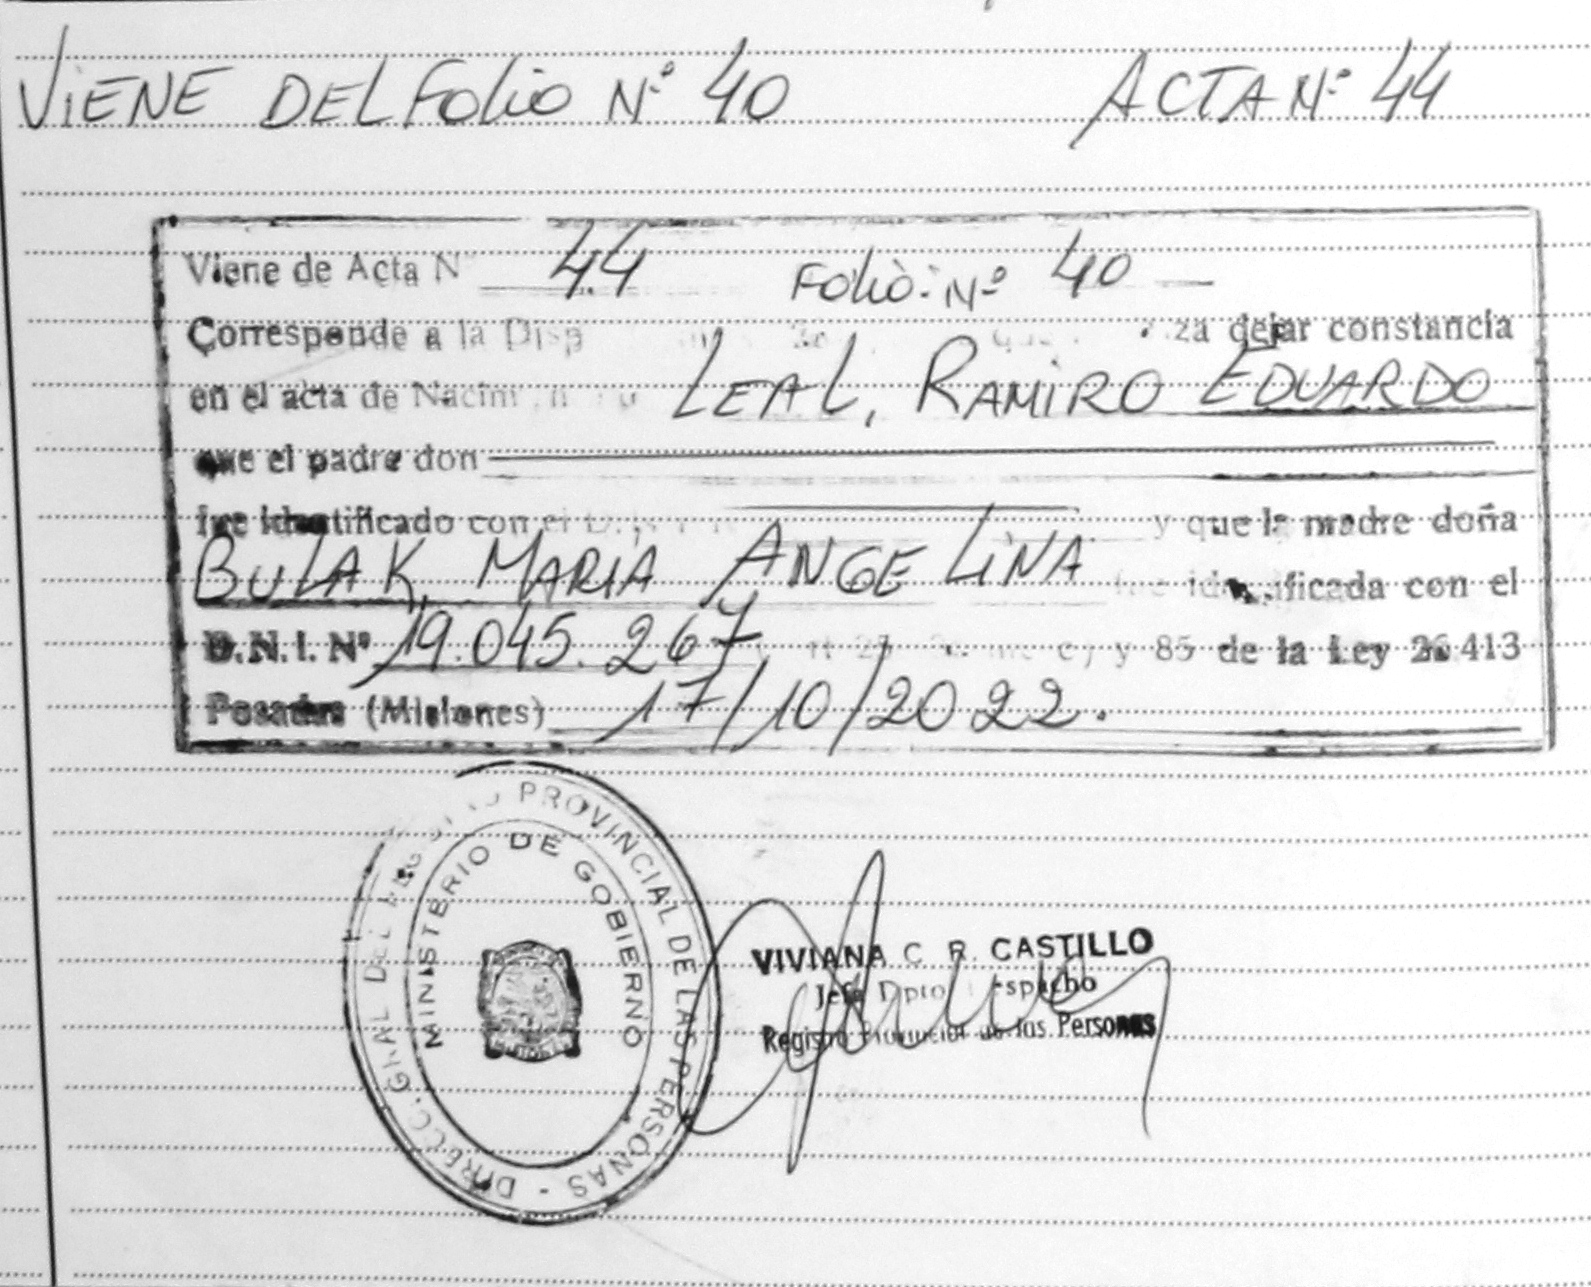 VIENE DEL FOLIO Nº 40 ACTA Nº 44
Viene de Acta Nº 44 FOLIO: Nº 40
Corresponde a la Disp za dejar constancia
en el acta de LEAL, RAMIRO EDUARDO
que el padre don
fue identificado con el y que la madre doña
BULAK, MARIA ANGELINA identificada con el
D.N.I. Nº 19.045.267 y 85 de la Ley 26413
Posadas (Misiones) 17/10/2022.
DIRECC. GRAL DEL REGISTRO PROVINCIAL DE LAS PERSONAS -
MINISTERIO DE GOBIERNO
VIVIANA C. R. CASTILLO
Jefe Dpto Despacho
Registro Provincial de las Personas